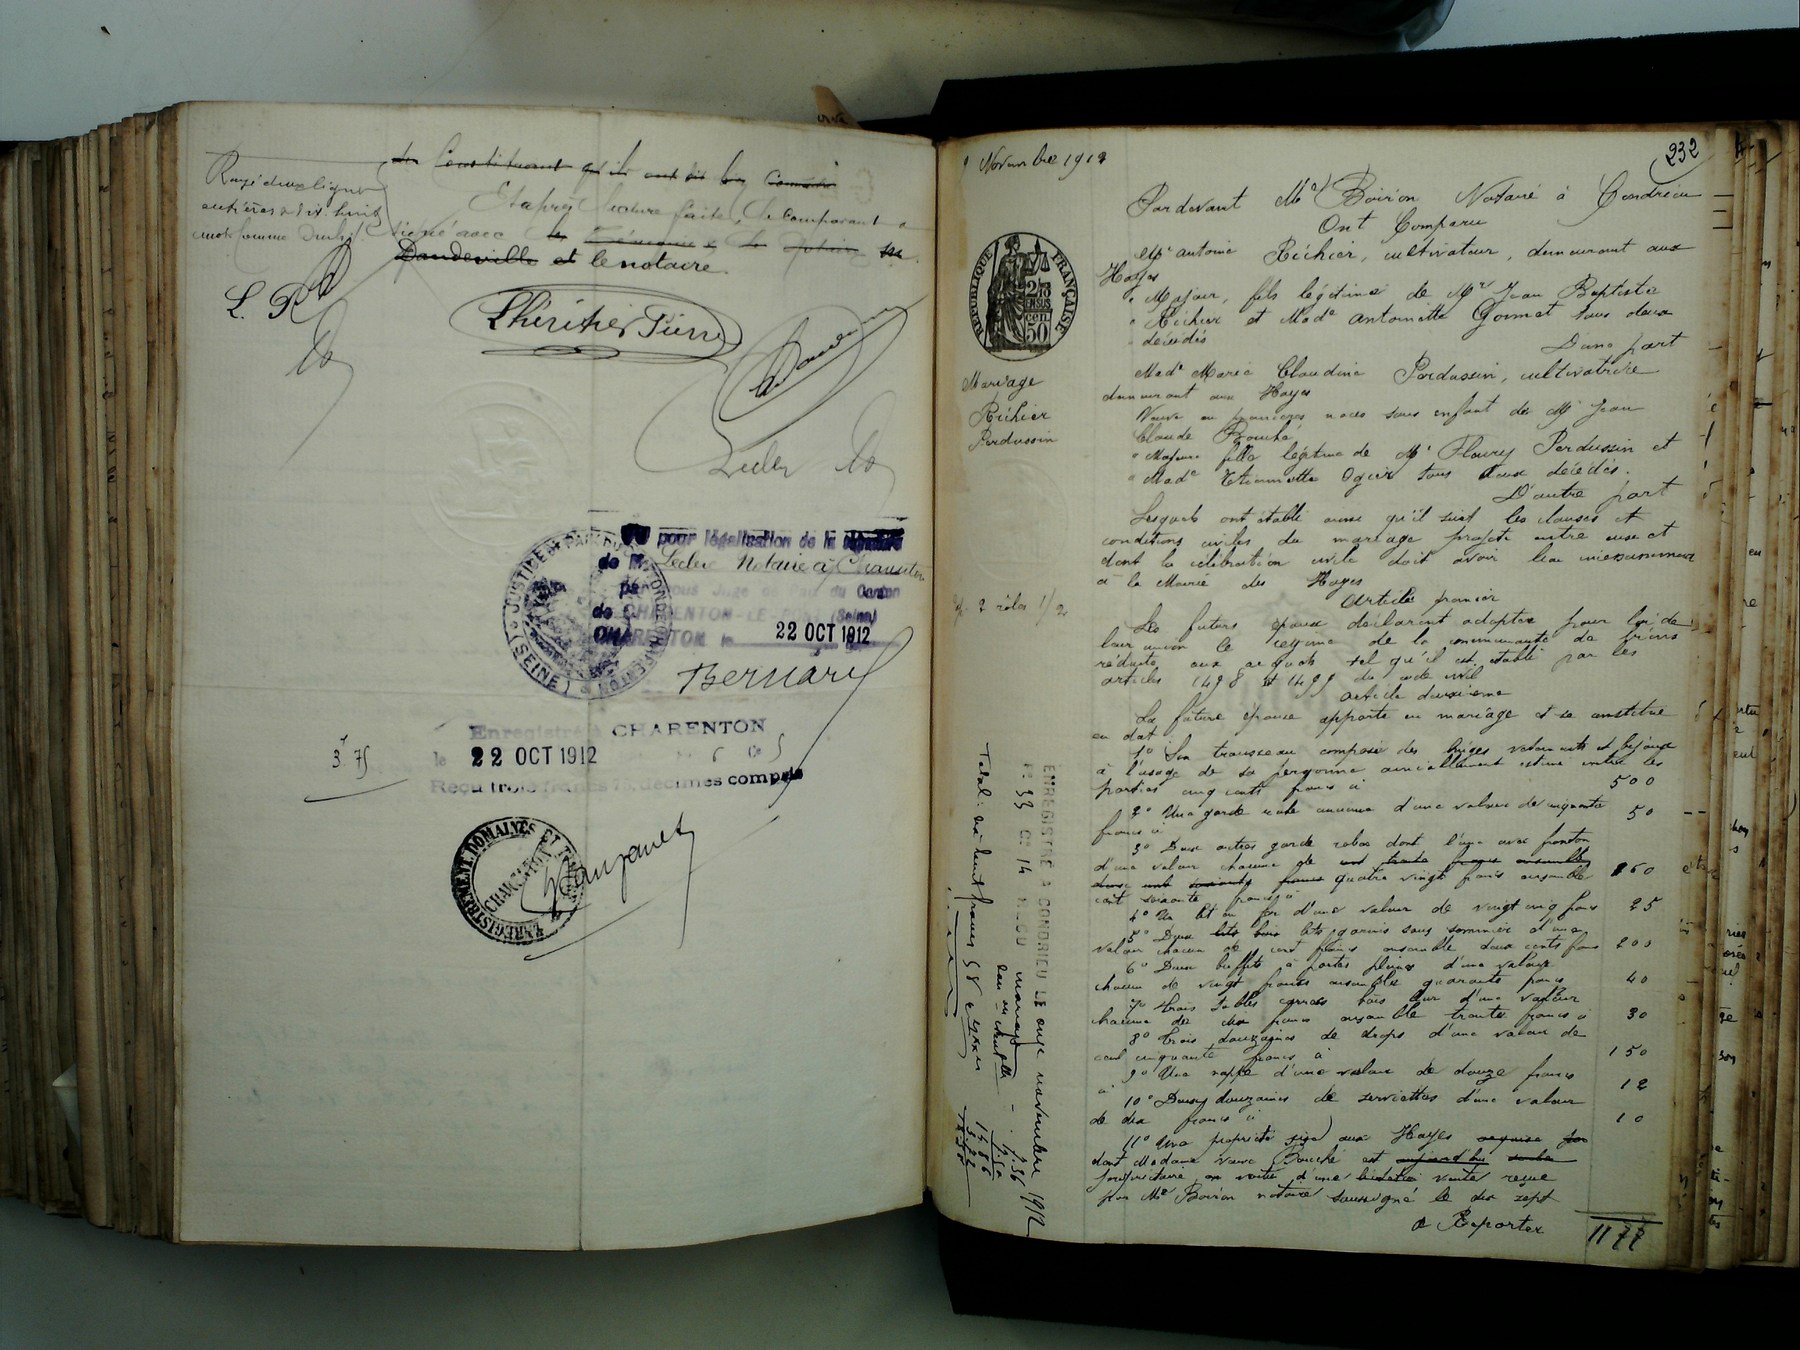 Rayé deux lignes
entières & dix huit
mots comme nuls
L. P.
les constituant qu'ils ont dit les
Et après lecture faite, le comparant a
signé avec les témoins & le notaire
Dandeville et le notaire.
Lhéritier Pierre
Leclerc
Vu pour légalisation de la signature
de M. Leclerc Notaire à Charenton
par nous Juge de Paix du Canton
de CHARENTON-LE-PONT (Seine)
CHARENTON le 22 OCT 1912
JUSTICE DE PAIX DU CANTON DE CHARENTON (SEINE)
Bernard
Enregistré à CHARENTON
le 22 OCT 1912
Reçu trois francs 75, décimes compris
3f 75
ENREGISTREMENT, DOMAINES ET TIMBRE
CHARENTON
232
9 Novembre 1912
Pardevant Me Boiron Notaire à Condrieu
Ont Comparu
Mr Antoine Richier, cultivateur, demeurant aux
Hayes
Majeur, fils légitime de Mr Jean Baptiste
Richier et Made Antoinette Gomet tous deux
décédés
D'une part
Made Marie Claudine Perdussin, cultivatrice
demeurant aux Hayes
Veuve en premières noces sans enfant de Mr Jean
Claude Bouché
Majeure fille légitime de Mr Fleury Perdussin et
Made Etiennette Ogier tous deux décédés.
D'autre part
RÉPUBLIQUE FRANÇAISE
2/10 EN SUS
50 cen
Mariage
Richier
Perdussin
Lesquels ont établi ainsi qu'il suit les clauses et
conditions civiles du mariage projeté entre eux et
dont la célébration civile doit avoir lieu incessamment
à la Mairie des Hayes
Article premier
2 rôles 1/2
Les futurs époux déclarent adopter pour loi de
leur union le régime de la communauté de biens
réduite aux acquêts tel qu'il est établi par les
articles 1498 et 1499 du code civil
Article deuxième
La future épouse apporte en mariage et se constitue
en dot
1° Son trousseau composé des linges vêtements et bijoux
à l'usage de sa personne amiablement estimé entre les
parties cinq cents francs ci 500
2° Une garde robe ancienne d'une valeur de cinquante
francs ci 50
3° Deux autres garde robes dont l'une avec fronton
d'une valeur chacune de cent trente francs ensemble
deux cent soixante francs quatre vingt francs ensemble 160
cent soixante francs ci
4° Un lit en fer d'une valeur de vingt cinq francs 25
5° Deux lits bois lits garnis sans sommier d'une
valeur chacun de cent francs ensemble deux cents francs 200
6° Deux buffets à portes pleines d'une valeur
chacun de vingt francs ensemble quarante francs 40
7° Trois tables carrées bois dur d'une valeur
chacune de dix francs ensemble trente francs ci 30
8° Trois douzaines de draps d'une valeur de
cent cinquante francs ci 150
9° Une nappe d'une valeur de douze francs
ci 12
10° Deux douzaines de serviettes d'une valeur
de dix francs ci 10
11° Une propriété sise aux Hayes acquise par
dont Madame veuve Bouché est aujourd'hui seule
propriétaire en vertu d'une vente reçue
par Me Boiron notaire soussigné le dix sept
à Reporter 1177
ENREGISTRÉ A CONDRIEU LE onze novembre 1912
F° 33 C° 14 REÇU mariage
Total: dix huit francs 58 c